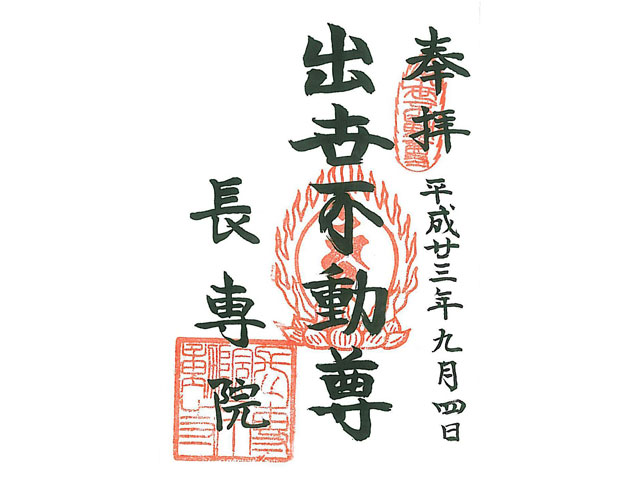 奉拝
平成廿三年九月四日
出世不動尊
長専院